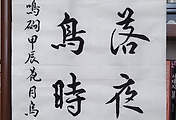 落夜
鳥時
鳴磵甲辰花月